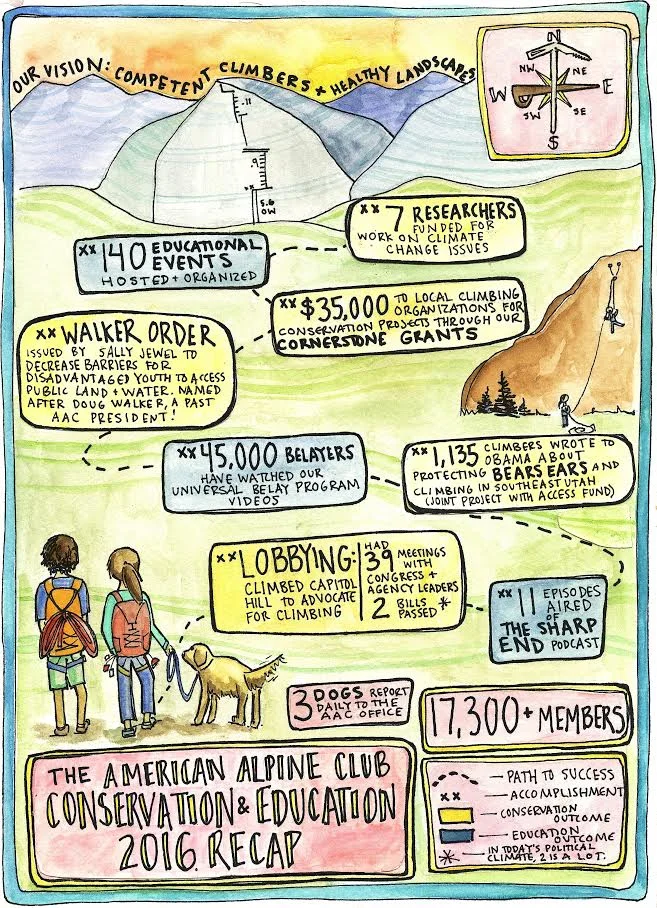 OUR VISION: COMPETENT CLIMBERS + HEALTHY LANDSCAPES
N
NW NE
W E
SW SE
S
.11
.9
xx
5.6
OW
xx 7 RESEARCHERS
FUNDED FOR
WORK ON CLIMATE
CHANGE ISSUES
xx 140 EDUCATIONAL
EVENTS
HOSTED + ORGANIZED
xx $35,000 TO LOCAL CLIMBING
ORGANIZATIONS FOR
CONSERVATION PROJECTS THROUGH OUR
CORNERSTONE GRANTS
xx WALKER ORDER
ISSUED BY SALLY JEWEL TO
DECREASE BARRIERS FOR
DISADVANTAGED YOUTH TO ACCESS
PUBLIC LAND + WATER. NAMED
AFTER DOUG WALKER, A PAST
AAC PRESIDENT!
xx 45,000 BELAYERS
HAVE WATCHED OUR
UNIVERSAL BELAY PROGRAM
VIDEOS
xx 1,135 CLIMBERS WROTE TO
OBAMA ABOUT
PROTECTING BEARS EARS AND
CLIMBING IN SOUTHEAST UTAH
(JOINT PROJECT WITH ACCESS FUND)
xx LOBBYING:
CLIMBED CAPITOL
HILL TO ADVOCATE
FOR CLIMBING
HAD
39 MEETINGS
WITH
CONGRESS +
AGENCY LEADERS
2 BILLS *
PASSED
xx 11 EPISODES
AIRED
OF
THE SHARP
END PODCAST
3 DOGS REPORT
DAILY TO THE
AAC OFFICE
17,300+ MEMBERS
THE AMERICAN ALPINE CLUB
CONSERVATION & EDUCATION
2016 RECAP
— PATH TO SUCCESS
xx — ACCOMPLISHMENT
— CONSERVATION
OUTCOME
— EDUCATION
OUTCOME
* — IN TODAY'S POLITICAL
CLIMATE, 2 IS A LOT.